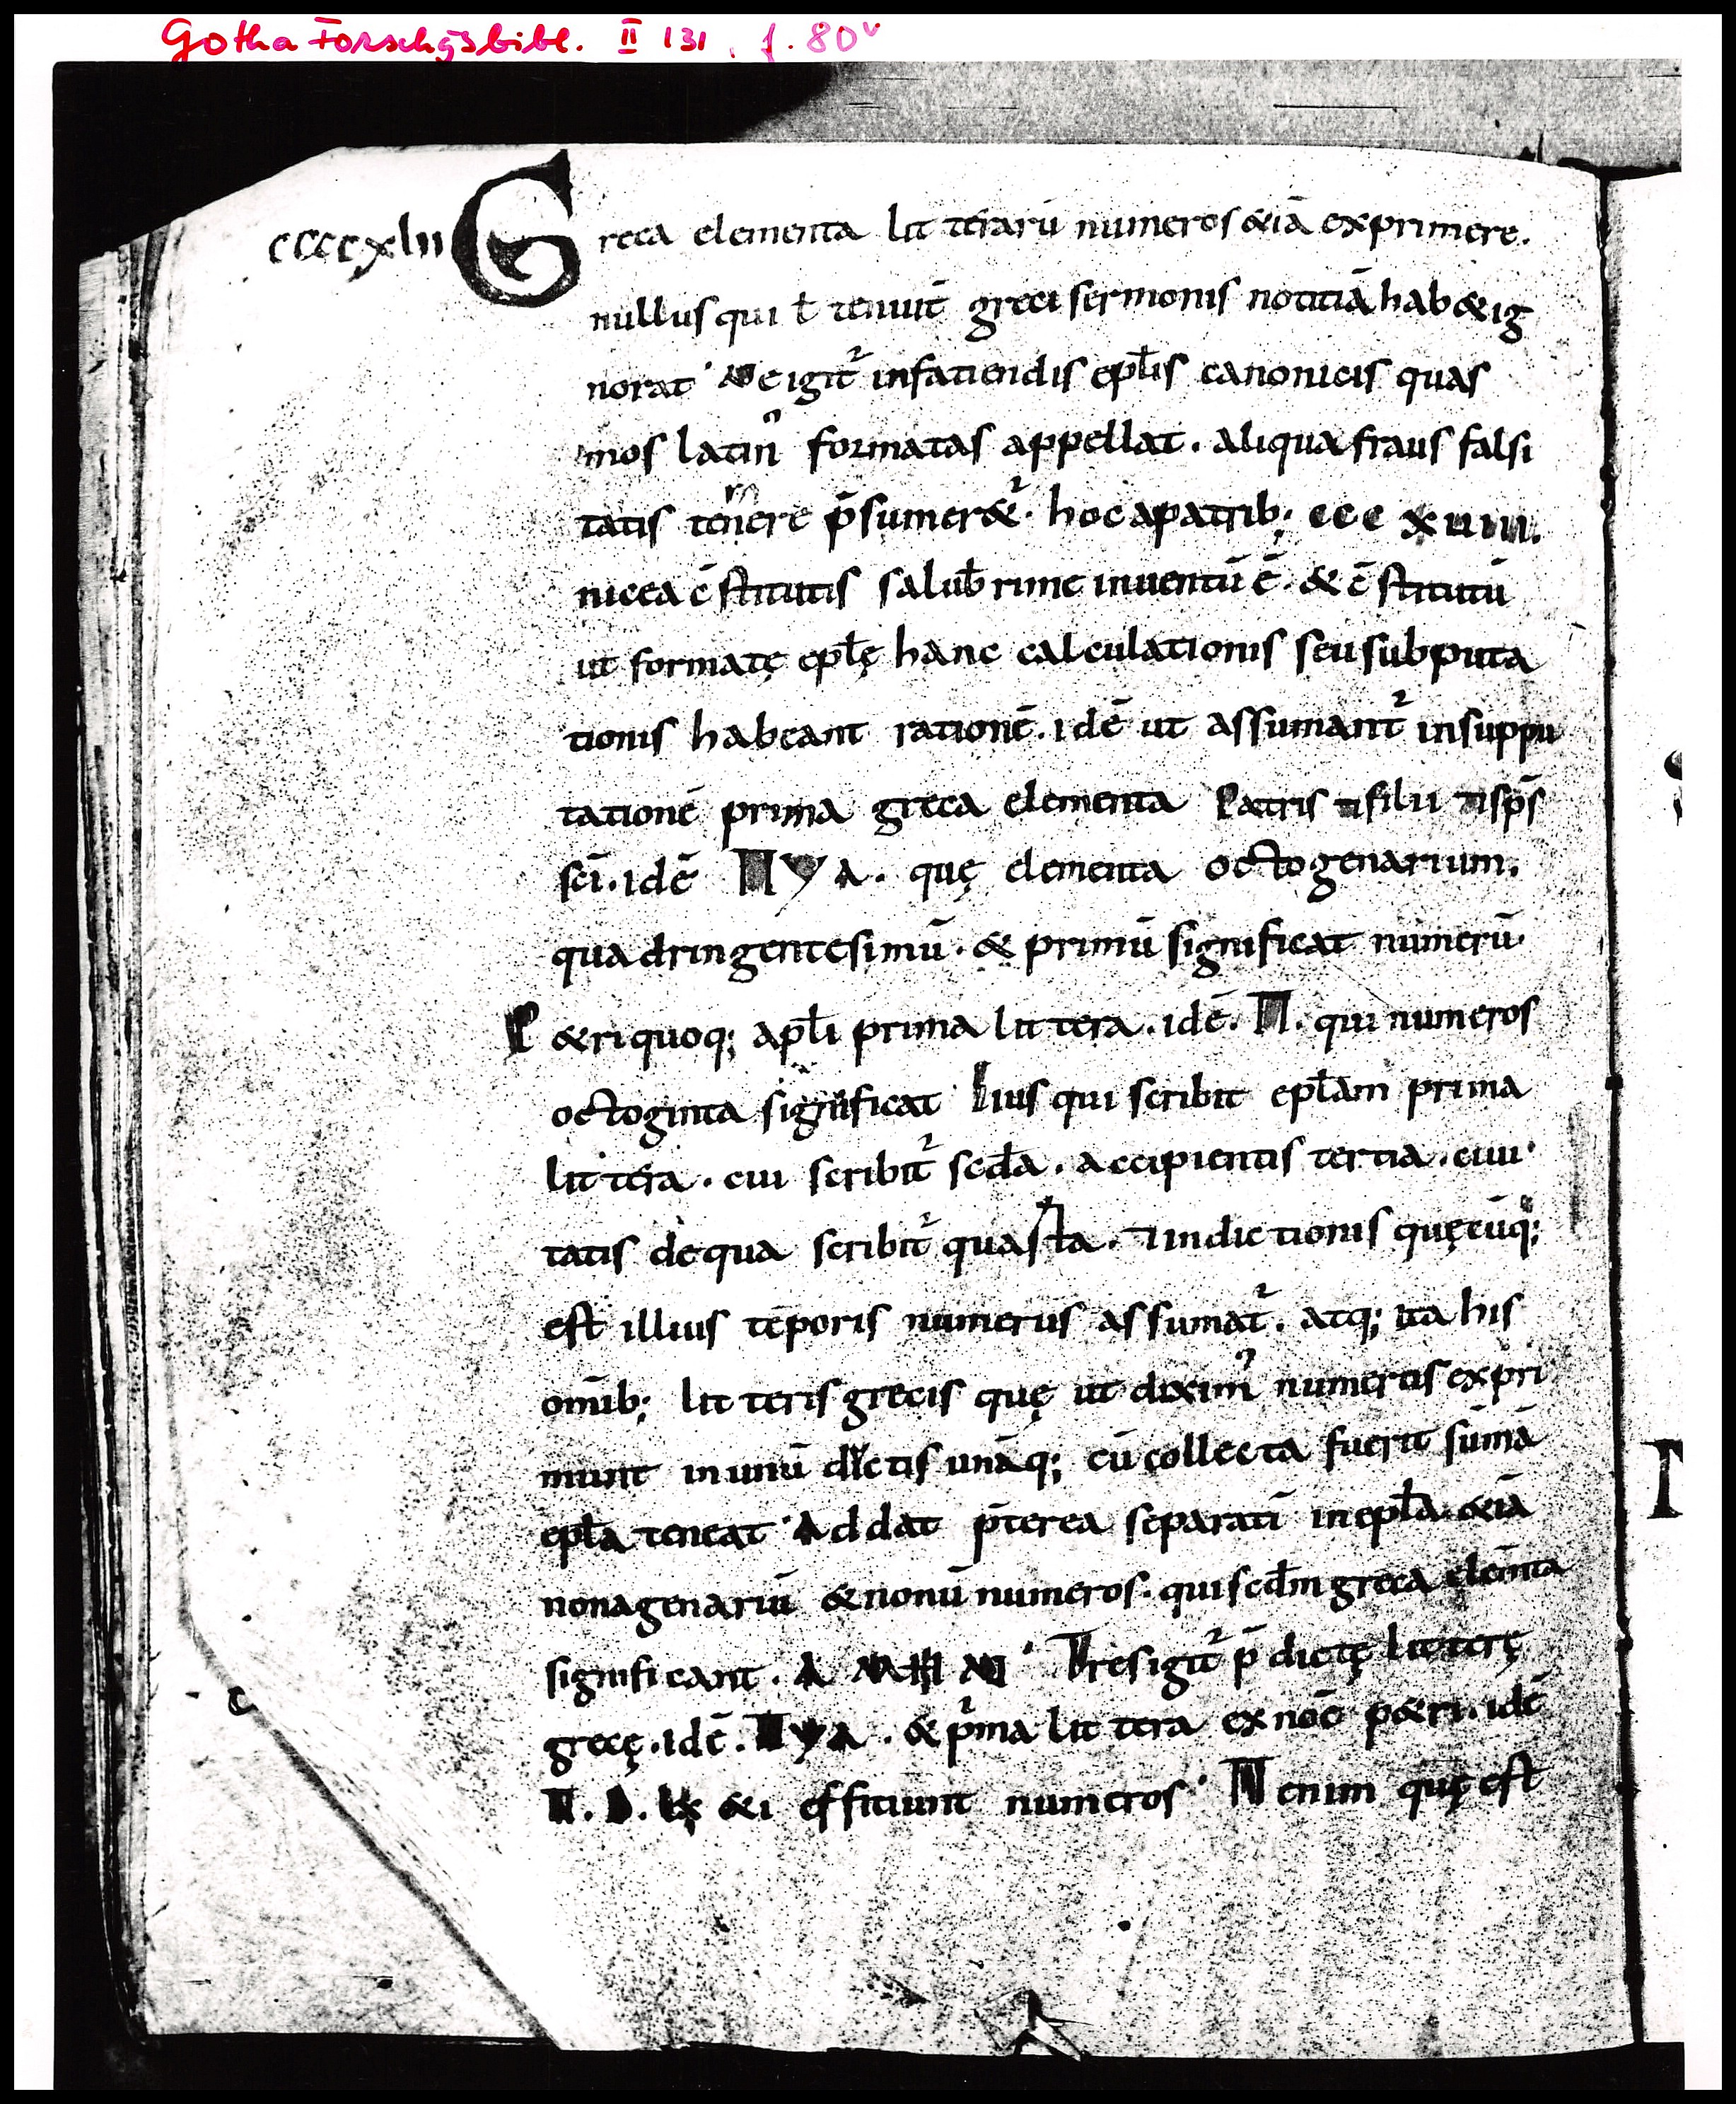 Gotha Forschgsbibl. II 131, f. 80v
ccccxlii Greca elementa litterarū numeros &iā exprimere.
nullus qui ł tenuit̄ greci sermonis notitiā hab& ig
norat. Ne igit᷑ in fatiendis epłis canonicis quas
mos latin᷒ formatas appellat. aliqua fraus falsi
tatis temere p̄sumer&᷑. hoc apatrib; ccc xuiii.
nicea c̄stitutis salub̄rime inuentū ē. & c̄stitutū
ut formatę epłę hanc calculationis seu subputa
tionis habeant rationē. idē ut assumant᷑ in suppu
tationē prima greca elementa Patris ⁊ filii ⁊ sp̄s
sc̄i. idē Π Y A. quę elementa octogenarium.
quadringentesimū. & primū significat numerū.
P&ri quoq; apłi prima littera. idē. Π. qui numeros
octoginta significat Eius qui scribit epłam prima
littera. cui scribit᷑ scđa. accipientis tertia. ciui
tatis de qua scribit᷑ quarta. ⁊ indictionis quęcūq;
est illius tēporis numerus assumat᷑. atq; ita his
omīb; litteris grecis quę ut dixim᷒ numeris expri
munt in unū ductis unāq; cū collecta fuerit sūmā
epła teneat. Addat p̄terea separatī in epła. &iā
nonagenariū & nonū numeros. qui scđm greca elem̄ta
significant. A Tres igit᷑ p̄dictę litterę
grecę. idē. Π Y A. & p᷑ma littera ex noē p&ri. idē
Π. &i effitiunt numeros. N enim quę est